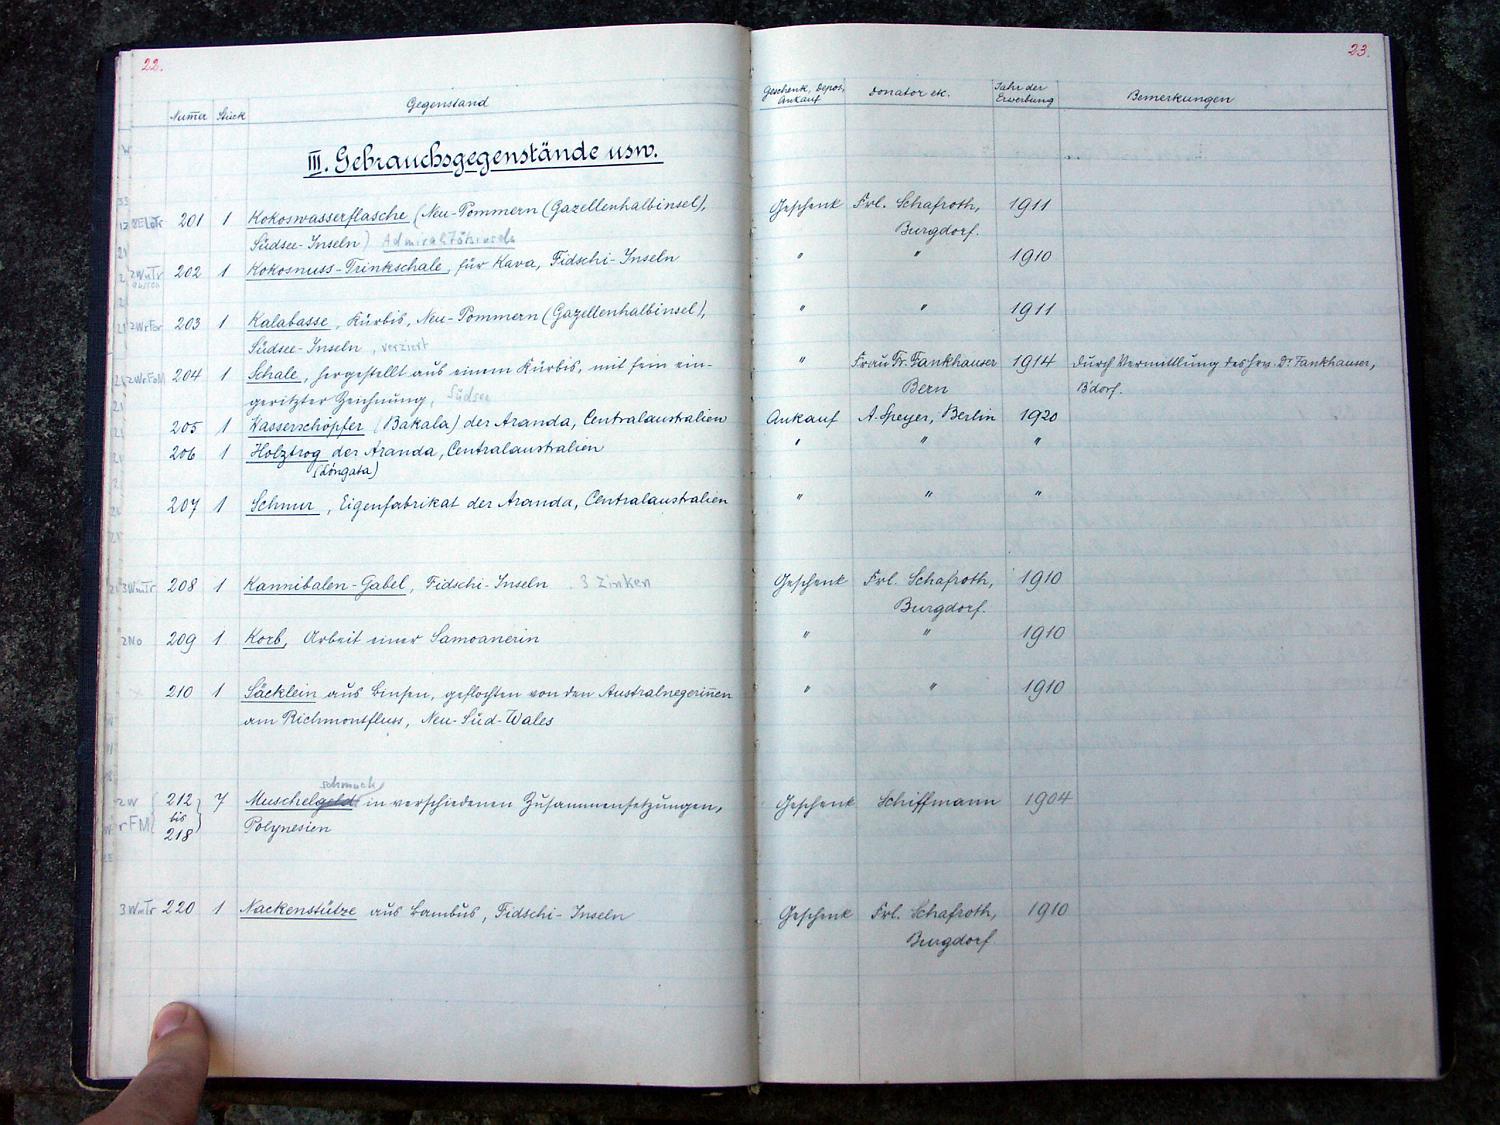 22.
23.
Numer Stück Gegenstand Geschenk, depos, Ankauf Donator etc. Jahr der Erwerbung Bemerkungen
III. Gebrauchsgegenstände usw.
201 1 Kokoswasserflasche (Neu-Pommern (Gazellenhalbinsel), Geschenk Frl. Schafroth, 1911
Südsee-Inseln) Burgdorf.
202 1 Kokosnuss-Trinkschale, für Kava, Fidschi-Inseln " " 1910
203 1 Kalabasse, Kürbis, Neu-Pommern (Gazellenhalbinsel), " " 1911
Südsee-Inseln, verziert
204 1 Schale, hergestellt aus einem Kürbis, mit fein ein- " Frau Dr. Fankhauser 1914 durch Vermittlung des Hrn. Dr Fankhauser,
geritzter Zeichnung, Südsee Bern B'dorf.
205 1 Wasserschöpfer (Bakala) der Aranda, Centralaustralien Ankauf A. Speyer, Berlin 1920
206 1 Holztrog der Aranda, Centralaustralien " " "
(Lóngata)
207 1 Schnur, Eigenfabrikat der Aranda, Centralaustralien " " "
3WmTr 208 1 Kannibalen-Gabel, Fidschi-Inseln . 3 Zinken Geschenk Frl. Schafroth, 1910
Burgdorf.
2No 209 1 Korb, Arbeit einer Samoanerin " " 1910
210 1 Säcklein aus Binsen, geflochten von den Australnegerinen " " 1910
am Richmonsfluss, Neu-Süd-Wales
schmuck
2W 212 7 Muschelgeld in verschiedenen Zusammensetzungen, Geschenk Schiffmann 1904
rFM bis Polynesien
218
3WmTr 220 1 Nackenstütze aus Bambus, Fidschi-Inseln Geschenk Frl. Schafroth, 1910
Burgdorf